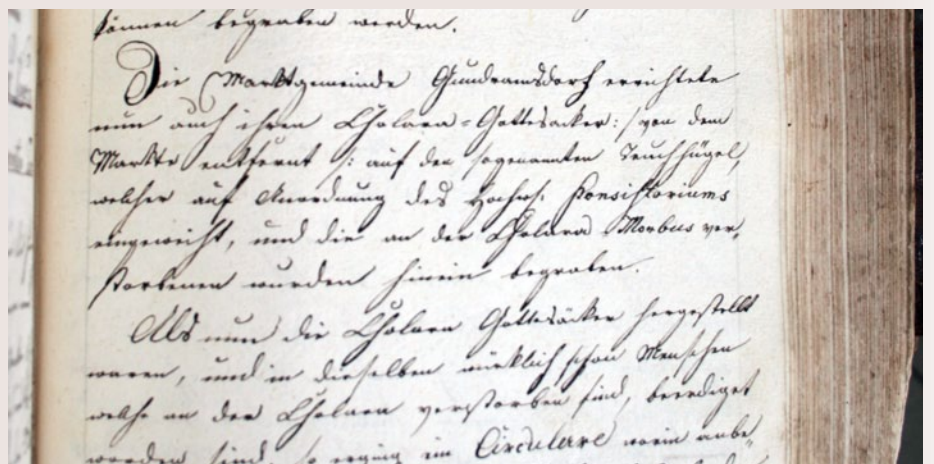 können begraben werden.
Die Marktgemeinde Gundramsdorf errichtete
nun auch ihren Cholera=Gottesacker: /von dem
Markte entfernt /: auf den sogenannten
welcher auf Anordnung des Hochw: Konsistoriums
eingeweiht, und die an der Cholera Morbus ver,
storbenen wurden hinein begraben.
Als nun die Cholera Gottesäcker hergestellt
waren, und in denselben wirklich schon Menschen
welche an der Cholera verstorben sind, beerdiget
worden sind, so erging ein Circulare worin anbe,